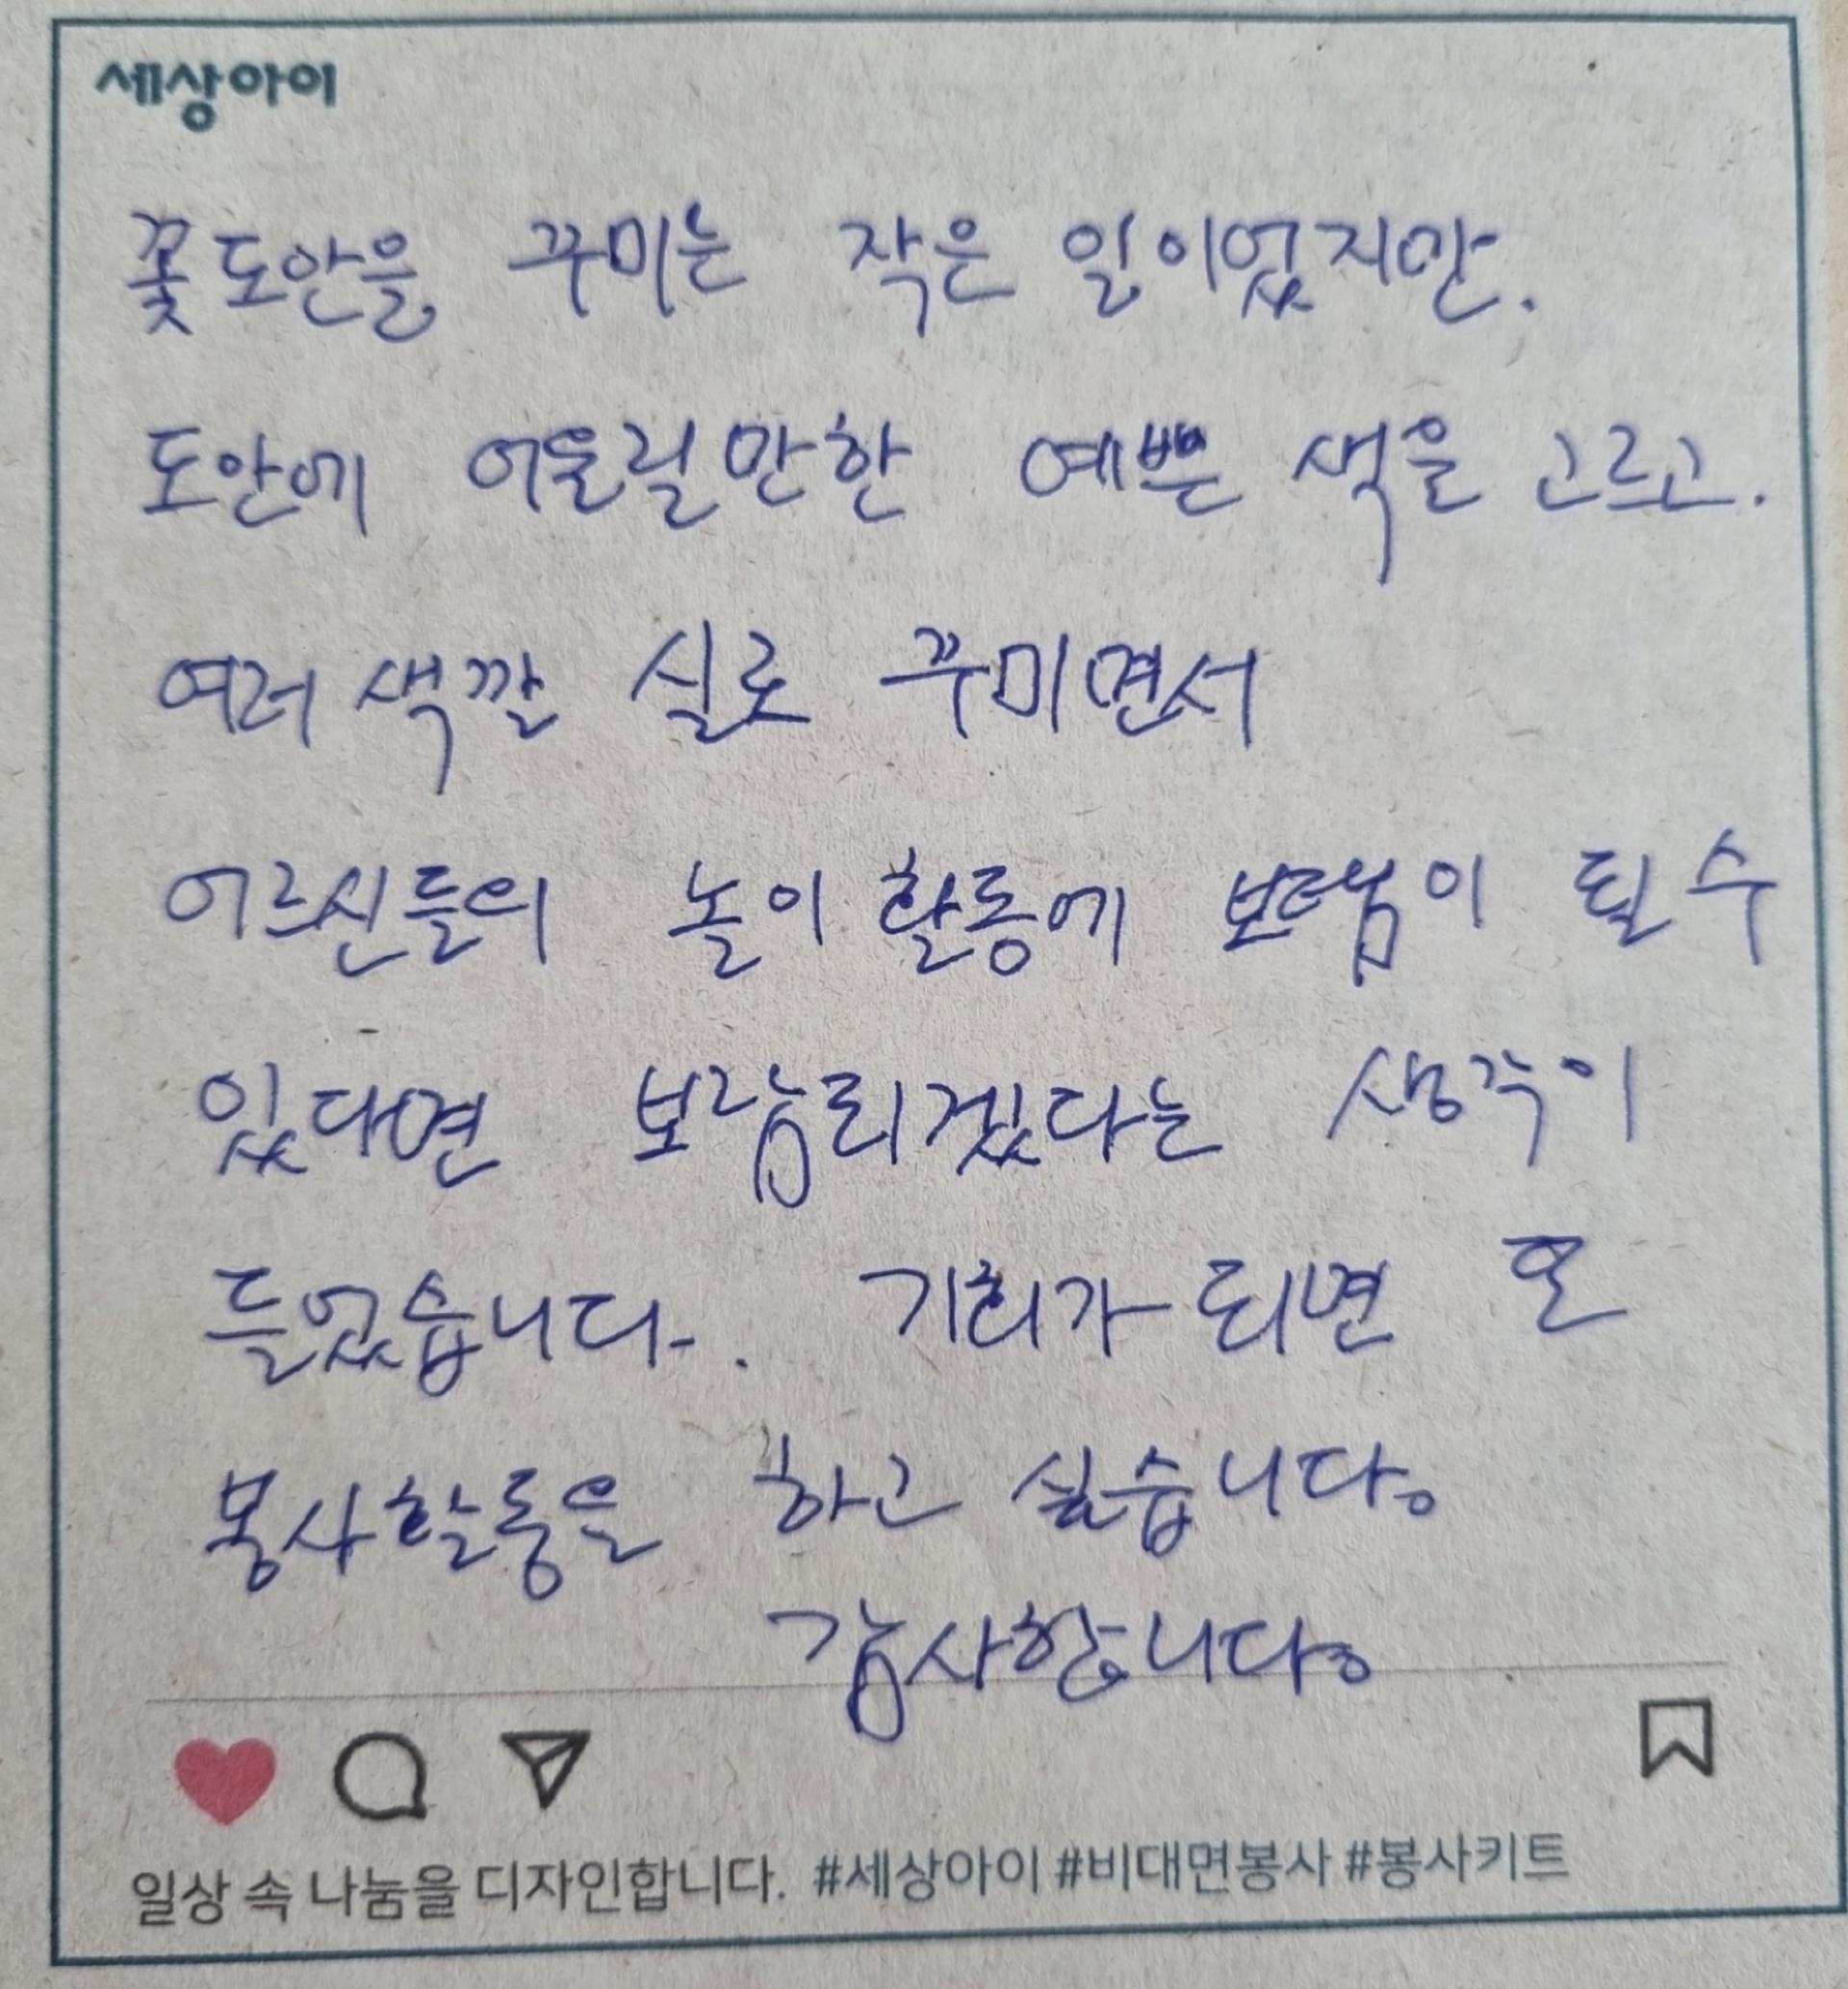 세상아이
꽃도안을 꾸미는 작은 일이었지만.
도안에 어울릴만한 예쁜 색을 고르고.
여러 색깔 실로 꾸미면서
어르신들의 놀이 활동에 보탬이 될 수
있다면 보람되겠다는 생각이
들었습니다. 기회가 되면 또
봉사활동을 하고 싶습니다.
감사합니다.
일상 속 나눔을 디자인합니다. #세상아이 #비대면봉사 #봉사키트